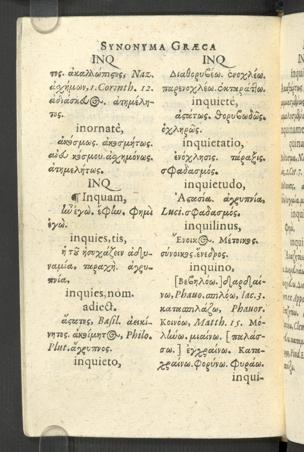 SYNONYMA GRÆCA
INQ
τος. ἀκαλλώπιςος, Naz.
ἀσχήμων, 1. Corinth. 12.
ἀτημέλη-
τος.
inornatè,
ἀκόσμως. ἀκοσμήτως.
κόσμου. ἀσχημόνως.
ἀτημελήτως.
INQ
¶ Inquam,
ἐγώ. ἔφω. Φημὶ
ἐγώ.
inquies, tis,
ἡ τοῦ ἡσυχάζειν ἀδυ-
ναμία, ταραχή. ἀγρυ-
πνία.
inquies, nom.
adiect.
ἄςατος, Basil. ἀεικί-
νητος. Philo.
Plut. ἄγρυπνος.
inquieto,
INQ
Διαθορυβέω. ἐνοχλέω.
παρενοχλέω.
inquietè,
ἀςάτως. θορυβωδῶς.
ὀχληρῶς.
inquietatio,
ἐνόχλησις. τάραξις.
σφαδασμός.
inquietudo,
Ἀςασία. ἀγρυπνία,
Luci. σφαδασμός.
inquilinus,
Ἔνοικος. Μέτοικος.
σύνοικος. ἔνεδρος.
inquino,
[Βεβηλόω.]
νω, Phauo. σπιλόω, Iac. 3.
Phauor.
Κοινόω, Matth. 15. Μο-
λύνω. μιαίνω. [παλάσ-
σω.] ἐγχραίνω. Κατα-
χραίνω. Φορύνω. Φυράω.
inqui-